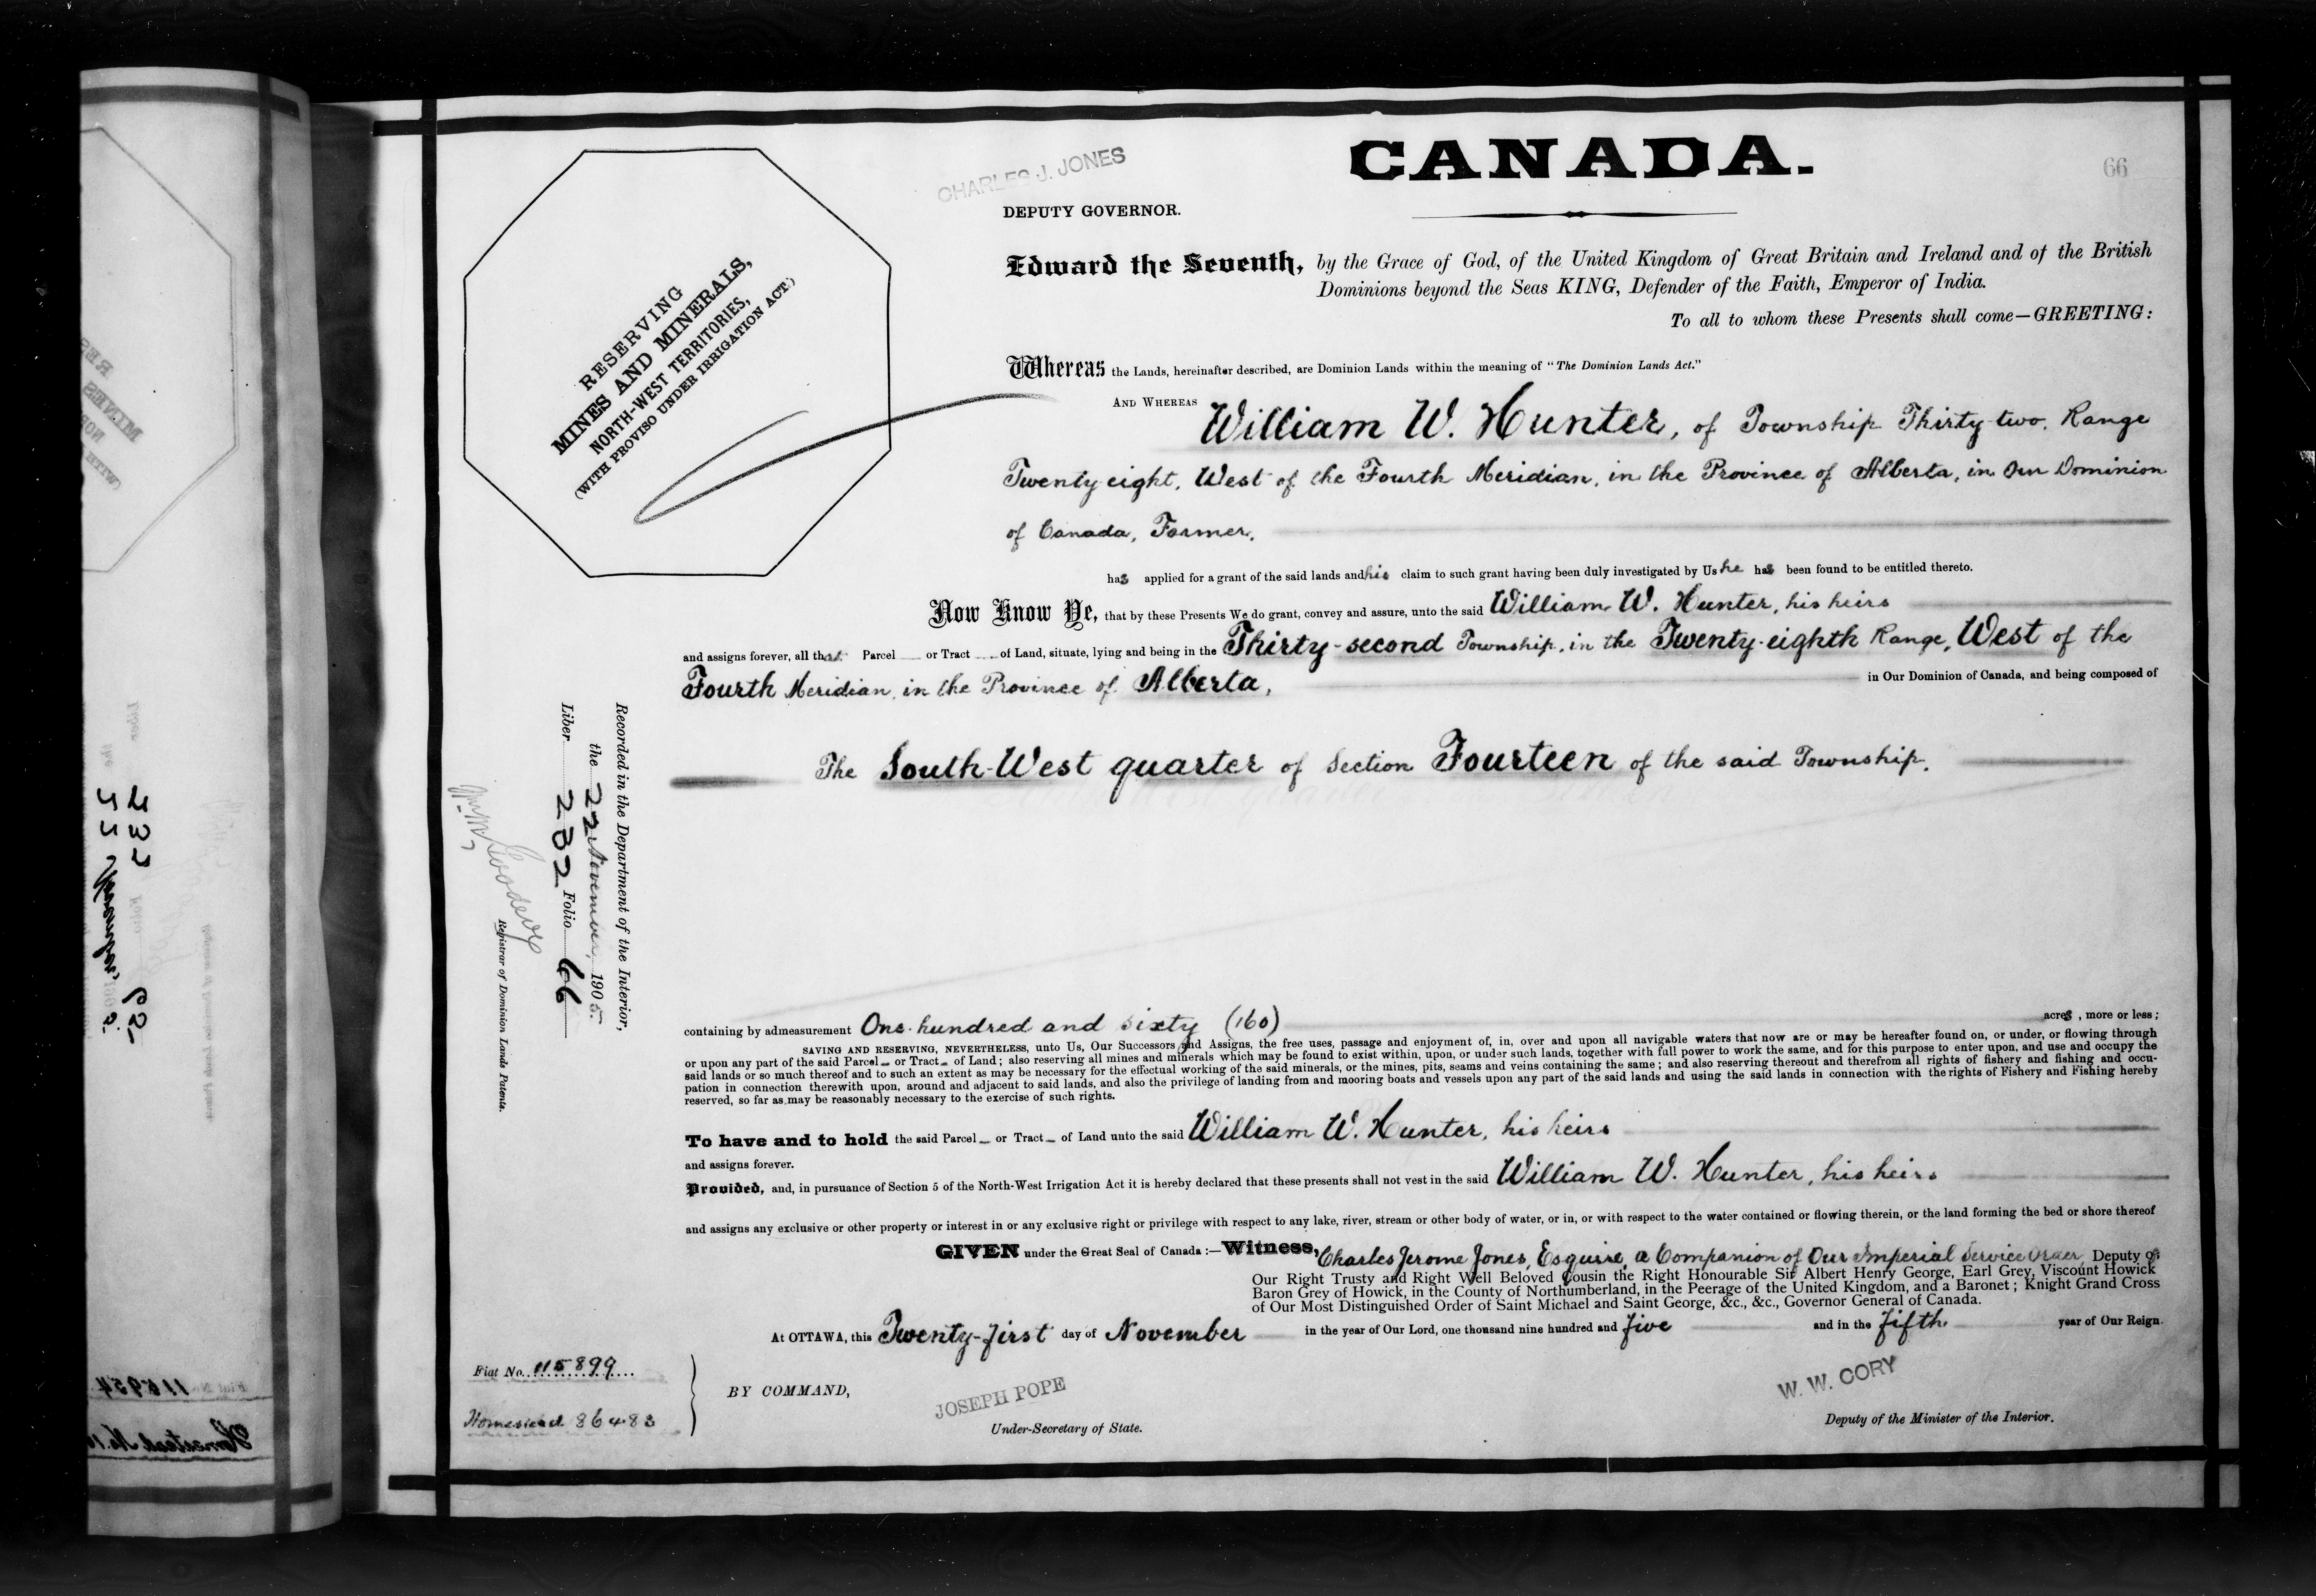 CANADA.
66
CHARLES J. JONES
DEPUTY GOVERNOR.
Edward the Seventh, by the Grace of God, of the United Kingdom of Great Britain and Ireland and of the British
Dominions beyond the Seas KING, Defender of the Faith, Emperor of India.
To all to whom these Presents shall come—GREETING:
RESERVING
MINES AND MINERALS,
NORTH-WEST TERRITORIES,
(WITH PROVISO UNDER IRRIGATION ACT.)
Whereas the Lands, hereinafter described, are Dominion Lands within the meaning of "The Dominion Lands Act."
AND WHEREAS William W. Hunter, of Township Thirty-two, Range
Twenty eight, West of the Fourth Meridian, in the Province of Alberta, in Our Dominion
of Canada, Farmer,
has applied for a grant of the said lands and his claim to such grant having been duly investigated by Us he has been found to be entitled thereto.
Now Know Ye, that by these Presents We do grant, convey and assure, unto the said William W. Hunter, his heirs
and assigns forever, all that Parcel or Tract of Land, situate, lying and being in the Thirty-second Township, in the Twenty-eighth Range, West of the
Fourth Meridian, in the Province of Alberta, in Our Dominion of Canada, and being composed of
The South-West quarter of Section Fourteen of the said Township.
Recorded in the Department of the Interior,
the 22 November, 1905.
Liber 282 Folio 66
Registrar of Dominion Lands Patents.
containing by admeasurement One hundred and sixty (160) acres, more or less;
SAVING AND RESERVING, NEVERTHELESS, unto Us, Our Successors and Assigns, the free uses, passage and enjoyment of, in, over and upon all navigable waters that now are or may be hereafter found on, or under, or flowing through
or upon any part of the said Parcel or Tract of Land; also reserving all mines and minerals which may be found to exist within, upon, or under such lands, together with full power to work the same, and for this purpose to enter upon, and use and occupy the
said lands or so much thereof and to such an extent as may be necessary for the effectual working of the said minerals, or the mines, pits, seams and veins containing the same; and also reserving thereout and therefrom all rights of fishery and fishing and occu-
pation in connection therewith upon, around and adjacent to said lands, and also the privilege of landing from and mooring boats and vessels upon any part of the said lands and using the said lands in connection with the rights of Fishery and Fishing hereby
reserved, so far as may be reasonably necessary to the exercise of such rights.
To have and to hold the said Parcel or Tract of Land unto the said William W. Hunter, his heirs
and assigns forever.
Provided, and, in pursuance of Section 5 of the North-West Irrigation Act it is hereby declared that these presents shall not vest in the said William W. Hunter, his heirs
and assigns any exclusive or other property or interest in or any exclusive right or privilege with respect to any lake, river, stream or other body of water, or in, or with respect to the water contained or flowing therein, or the land forming the bed or shore thereof
GIVEN under the Great Seal of Canada:—Witness, Charles Jerome Jones, Esquire, a Companion of Our Imperial Service Order Deputy of
Our Right Trusty and Right Well Beloved Cousin the Right Honourable Sir Albert Henry George, Earl Grey, Viscount Howick
Baron Grey of Howick, in the County of Northumberland, in the Peerage of the United Kingdom, and a Baronet; Knight Grand Cross
of Our Most Distinguished Order of Saint Michael and Saint George, &c., &c., Governor General of Canada.
At OTTAWA, this Twenty-first day of November in the year of Our Lord, one thousand nine hundred and five and in the fifth year of Our Reign.
Fiat No. 115899
Homestead 86483
BY COMMAND,
JOSEPH POPE
Under-Secretary of State.
W. W. CORY
Deputy of the Minister of the Interior.